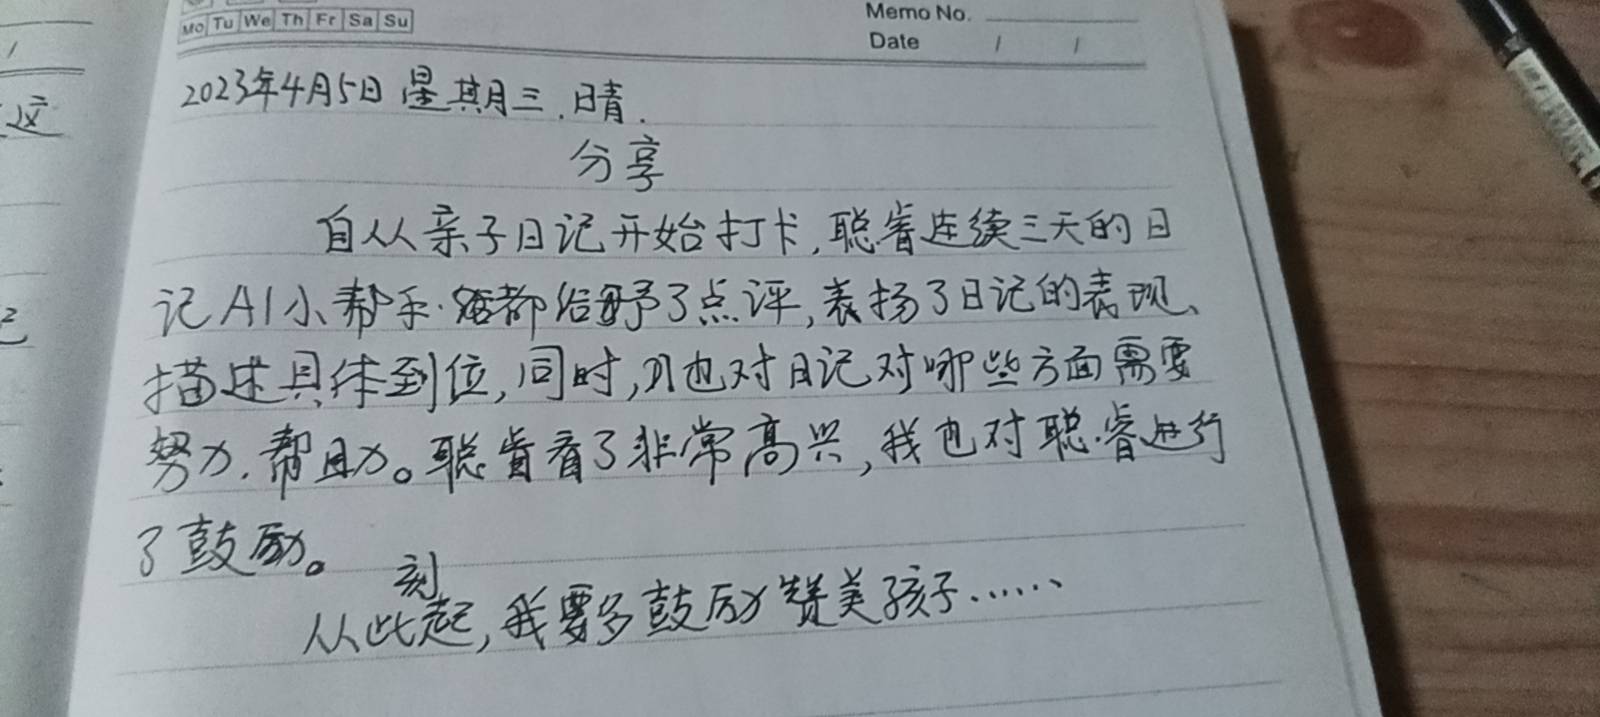 Mo Tu We Th Fr Sa Su
Memo No.
Date / /
2023年4月5日 星期三.晴.
分享
自从亲子日记开始打卡,聪睿连续三天的日
记AI小帮手都给予了点评,表扬了日记的表现、
描述具体到位,同时,也对日记对哪些方面需要
努力.帮助。聪睿看了非常高兴,我也对聪睿进行
了鼓励。
从此刻起,我要多鼓励赞美孩子……
这
记